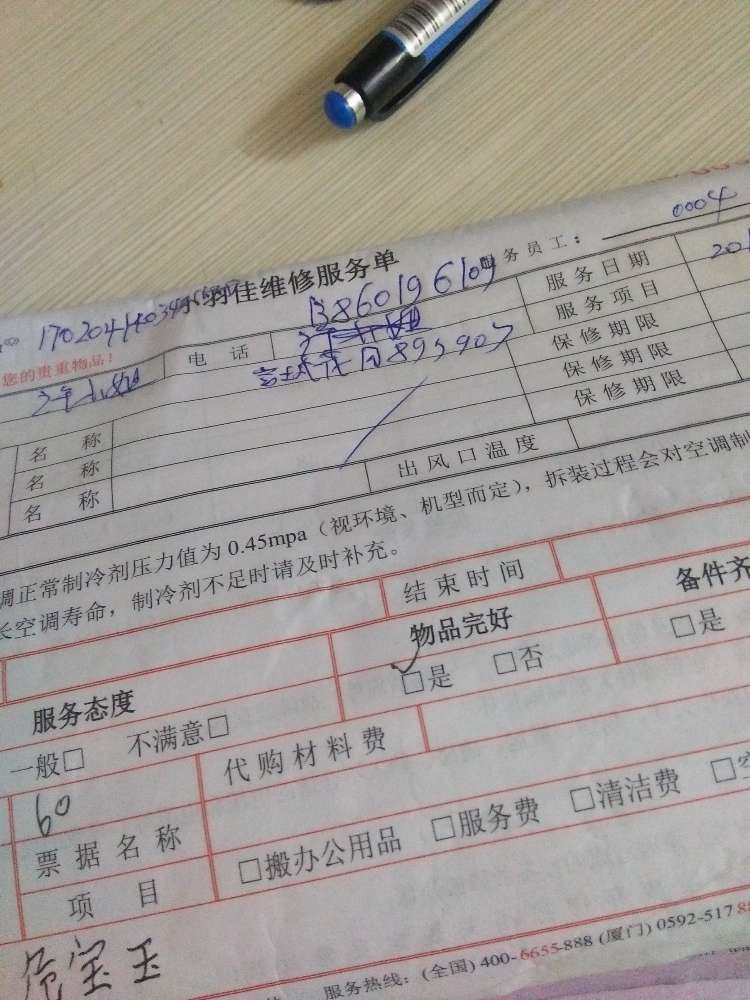 服务员工： 0004
佳维修服务单
服务日期 201
13860196109
服务项目
您的贵重物品！
电话
保修期限
名称
保修期限
名称
保修期限
名称
出风口温度
调正常制冷剂压力值为0.45mpa（视环境、机型而定），拆装过程会对空调制
长空调寿命，制冷剂不足时请及时补充。
结束时间
服务态度 物品完好 备件齐
一般□ 不满意□ □是 □否 □是
60 代购材料费
票据名称
项目 □搬办公用品 □服务费 □清洁费
宝玉
服务热线：(全国) 400-6655-888 (厦门) 0592-517